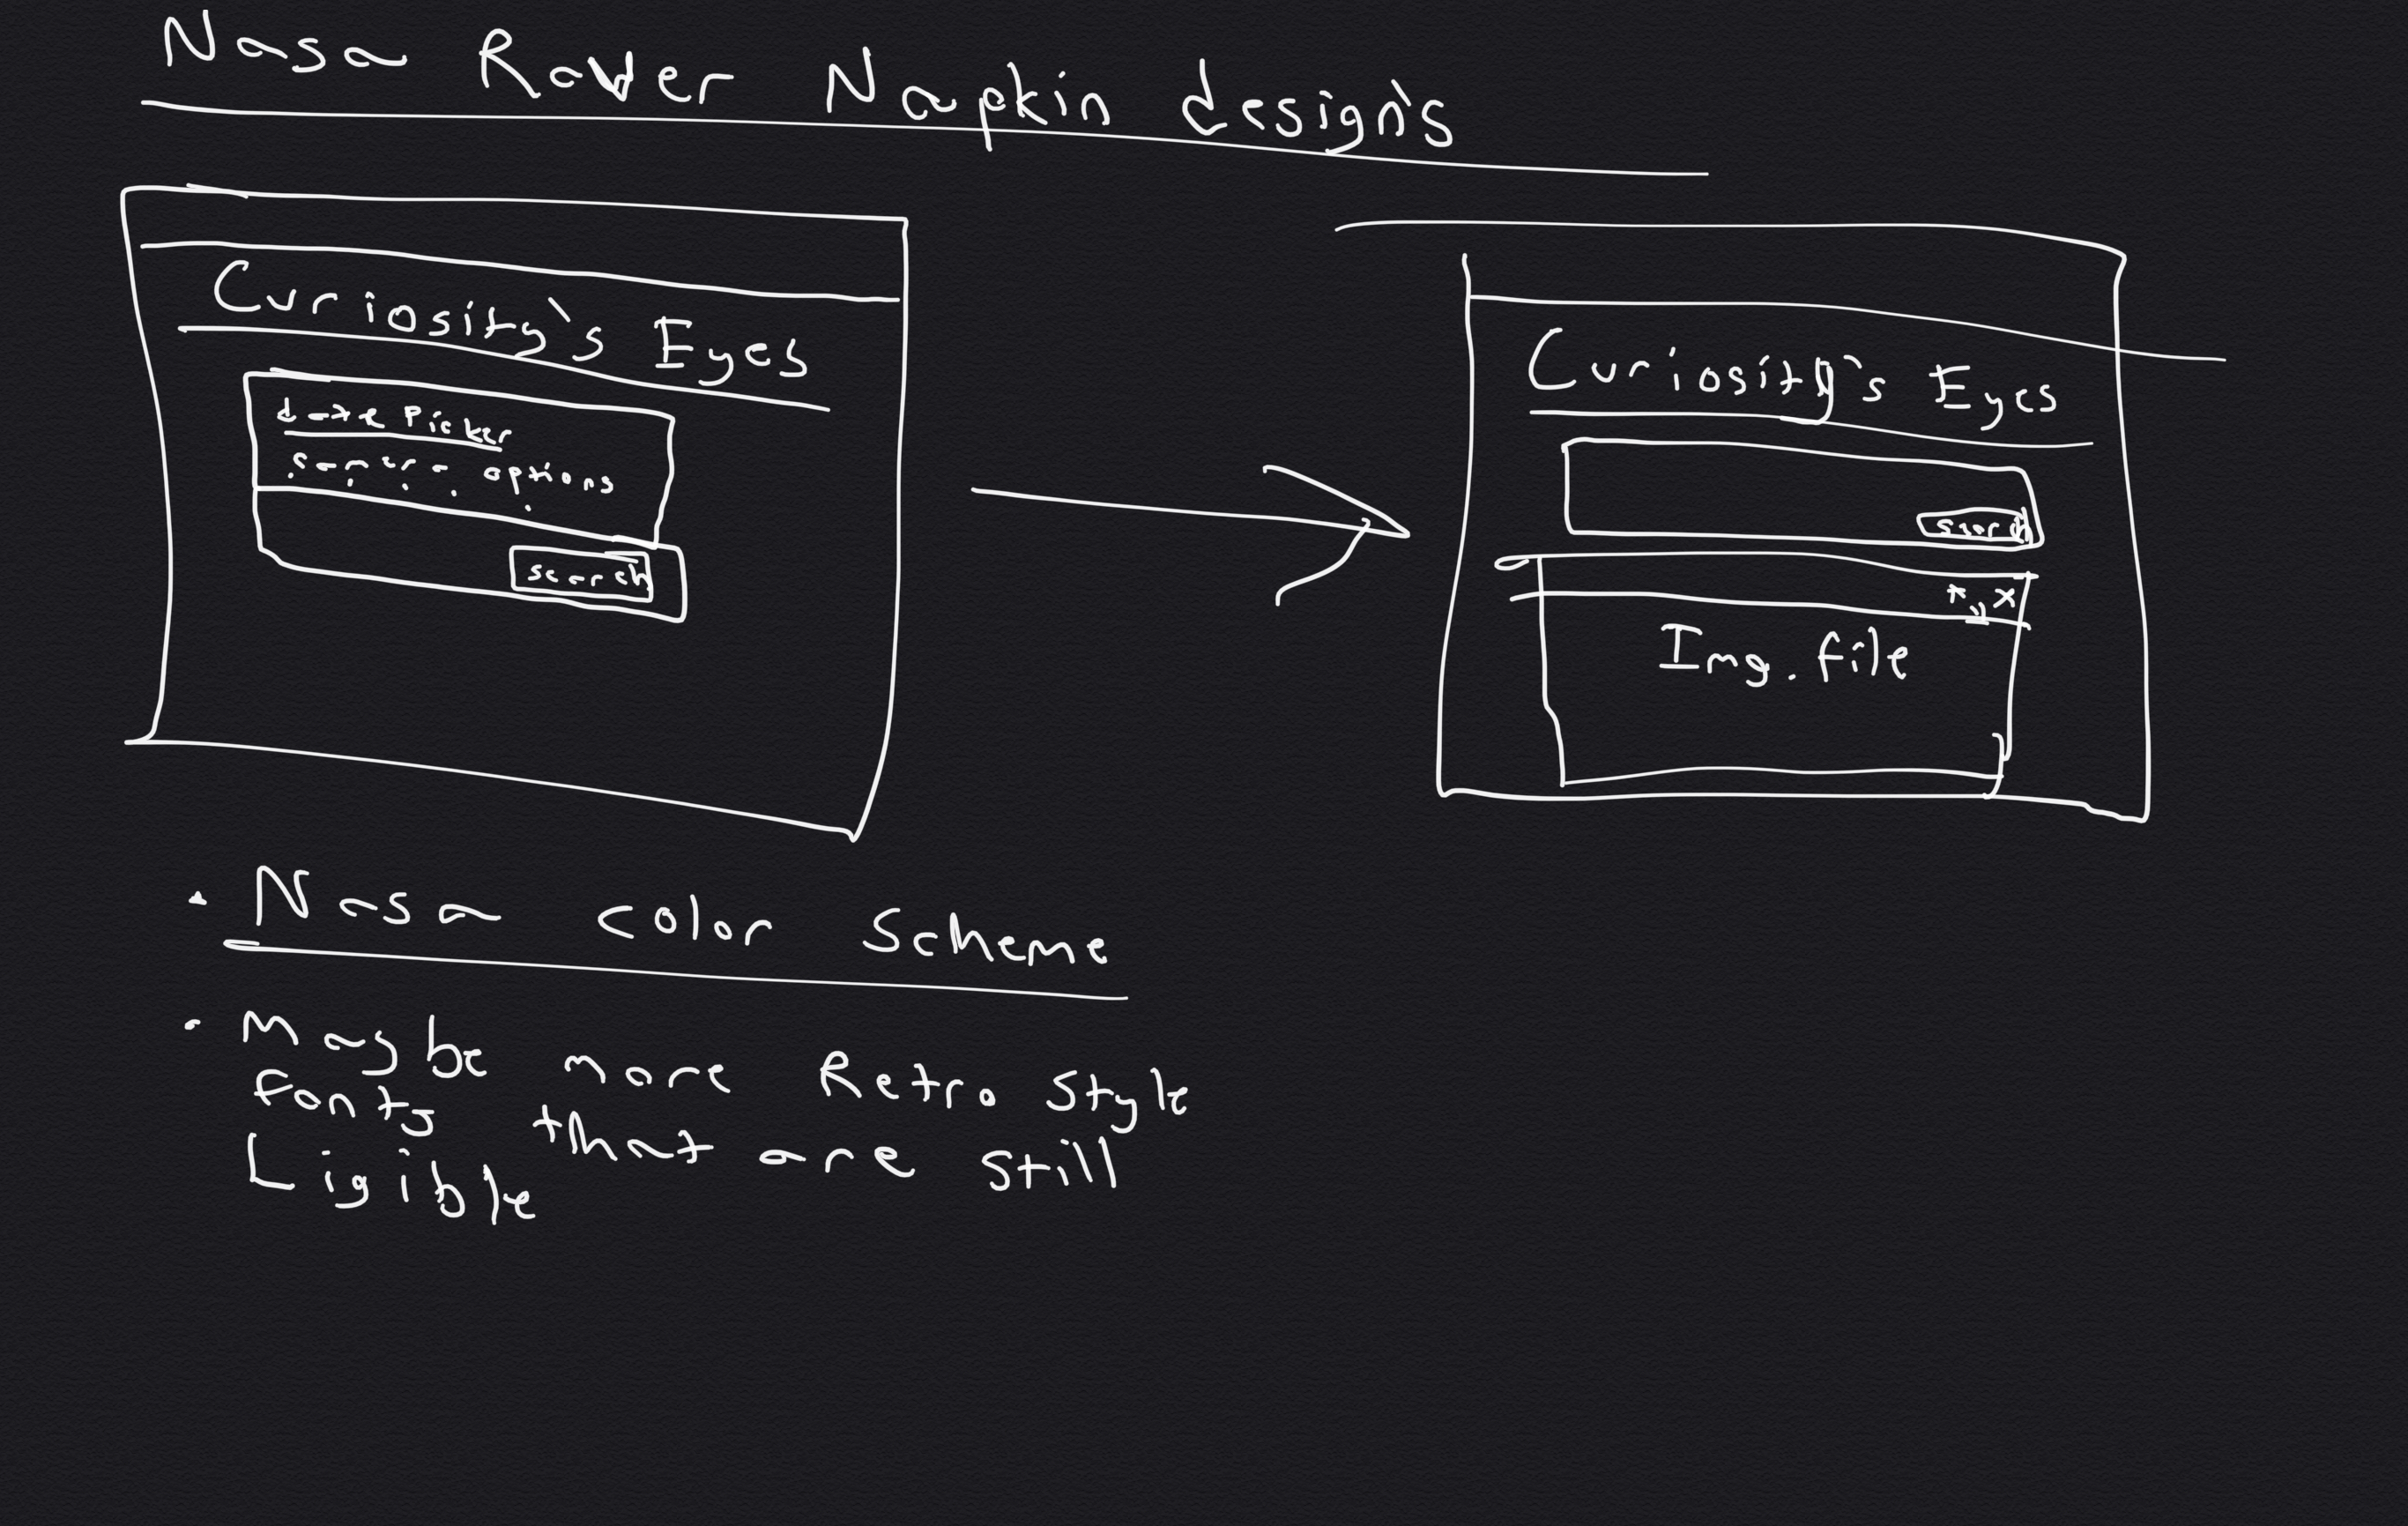 Nasa Rover Napkin design's
Curiosity's Eyes
date Picker
camera options
search
Curiosity's Eyes
search
Img.file
• Nasa color Scheme
• Maybe more Retro Style
fonts that are still
Ligible